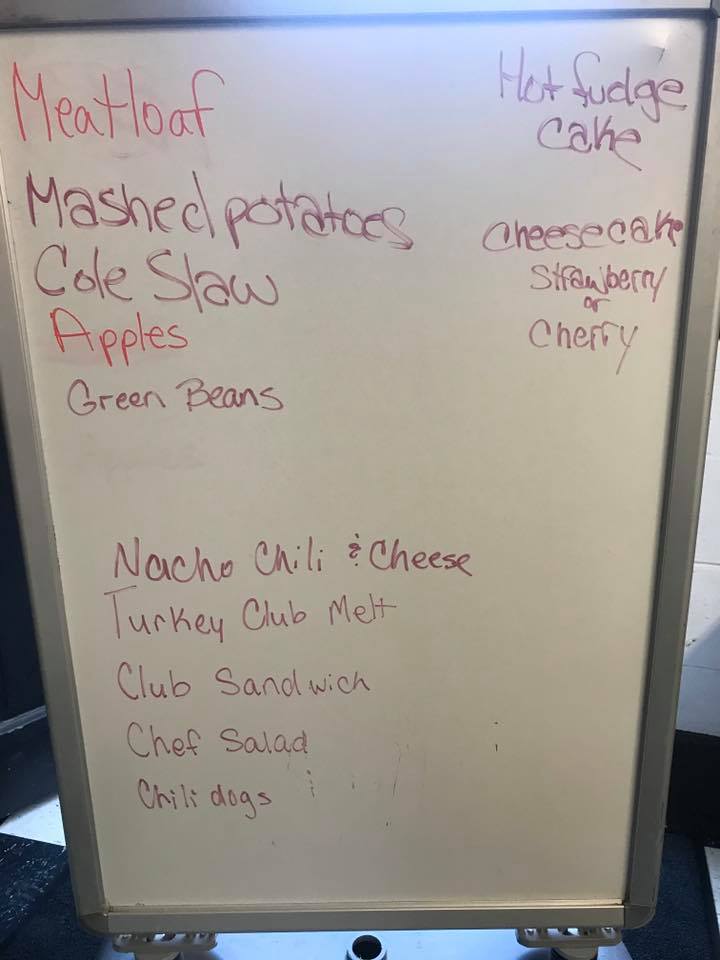 Meatloaf
Mashed potatoes
Cole Slaw
Apples
Green Beans
Hot fudge
cake
Cheesecake
Strawberry
or
Cherry
Nacho Chili & Cheese
Turkey Club Melt
Club Sandwich
Chef Salad
Chili dogs